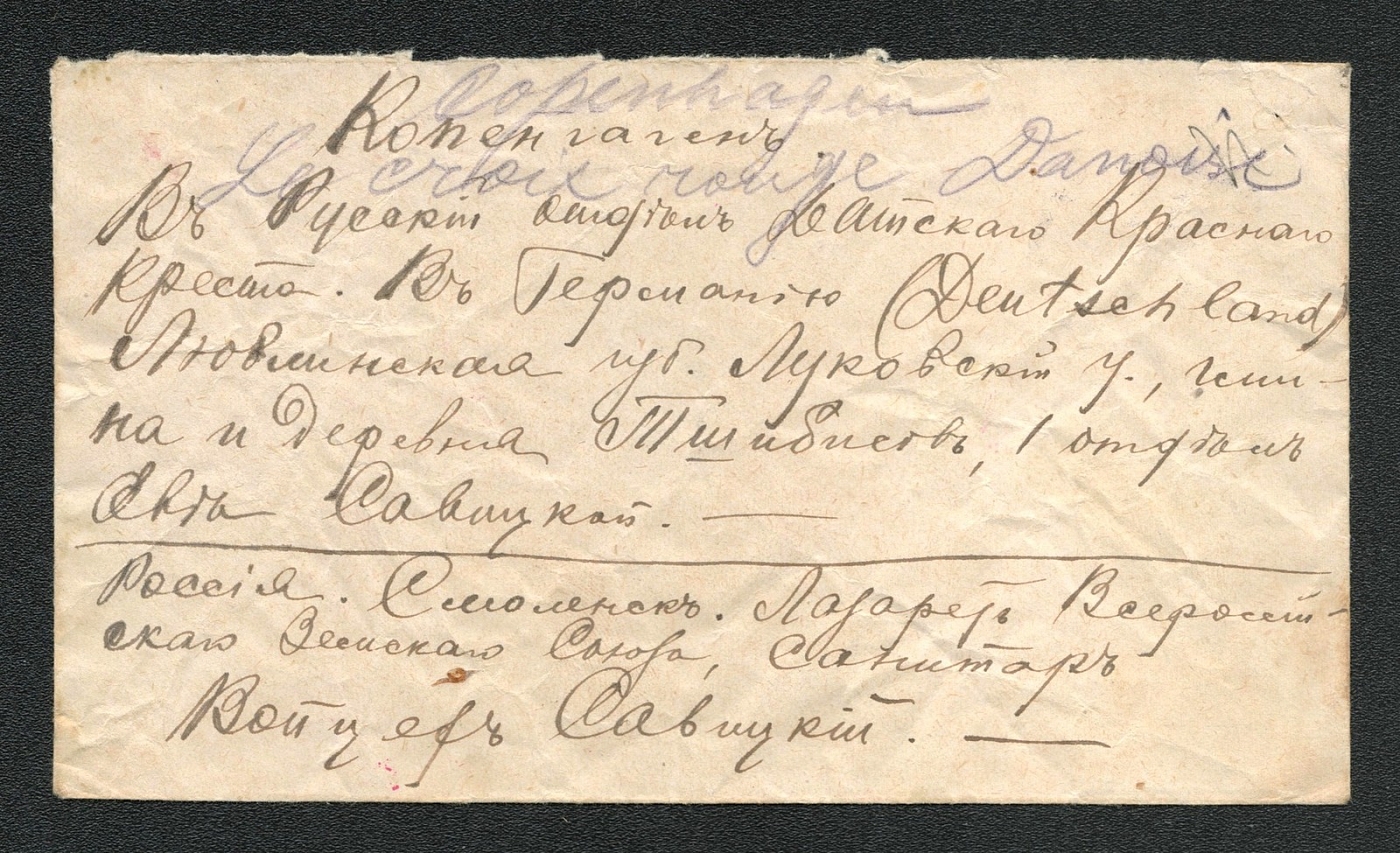 Copenhagen
Копенгагенъ.
La croix rouge Danoise
Въ Русскій отдѣлъ Датскаго Краснаго
Креста. Въ Германію (Deutschland)
Люблинская губ. Луковскій у., гми-
на и деревня Тшибѣсовъ, 1 отдѣлъ
Эвѣ Савицкой. —
Россія. Смоленскъ. Лазаретъ Всероссій-
скаго Земскаго Союза, Санитаръ
Войцехъ Савицкій. —